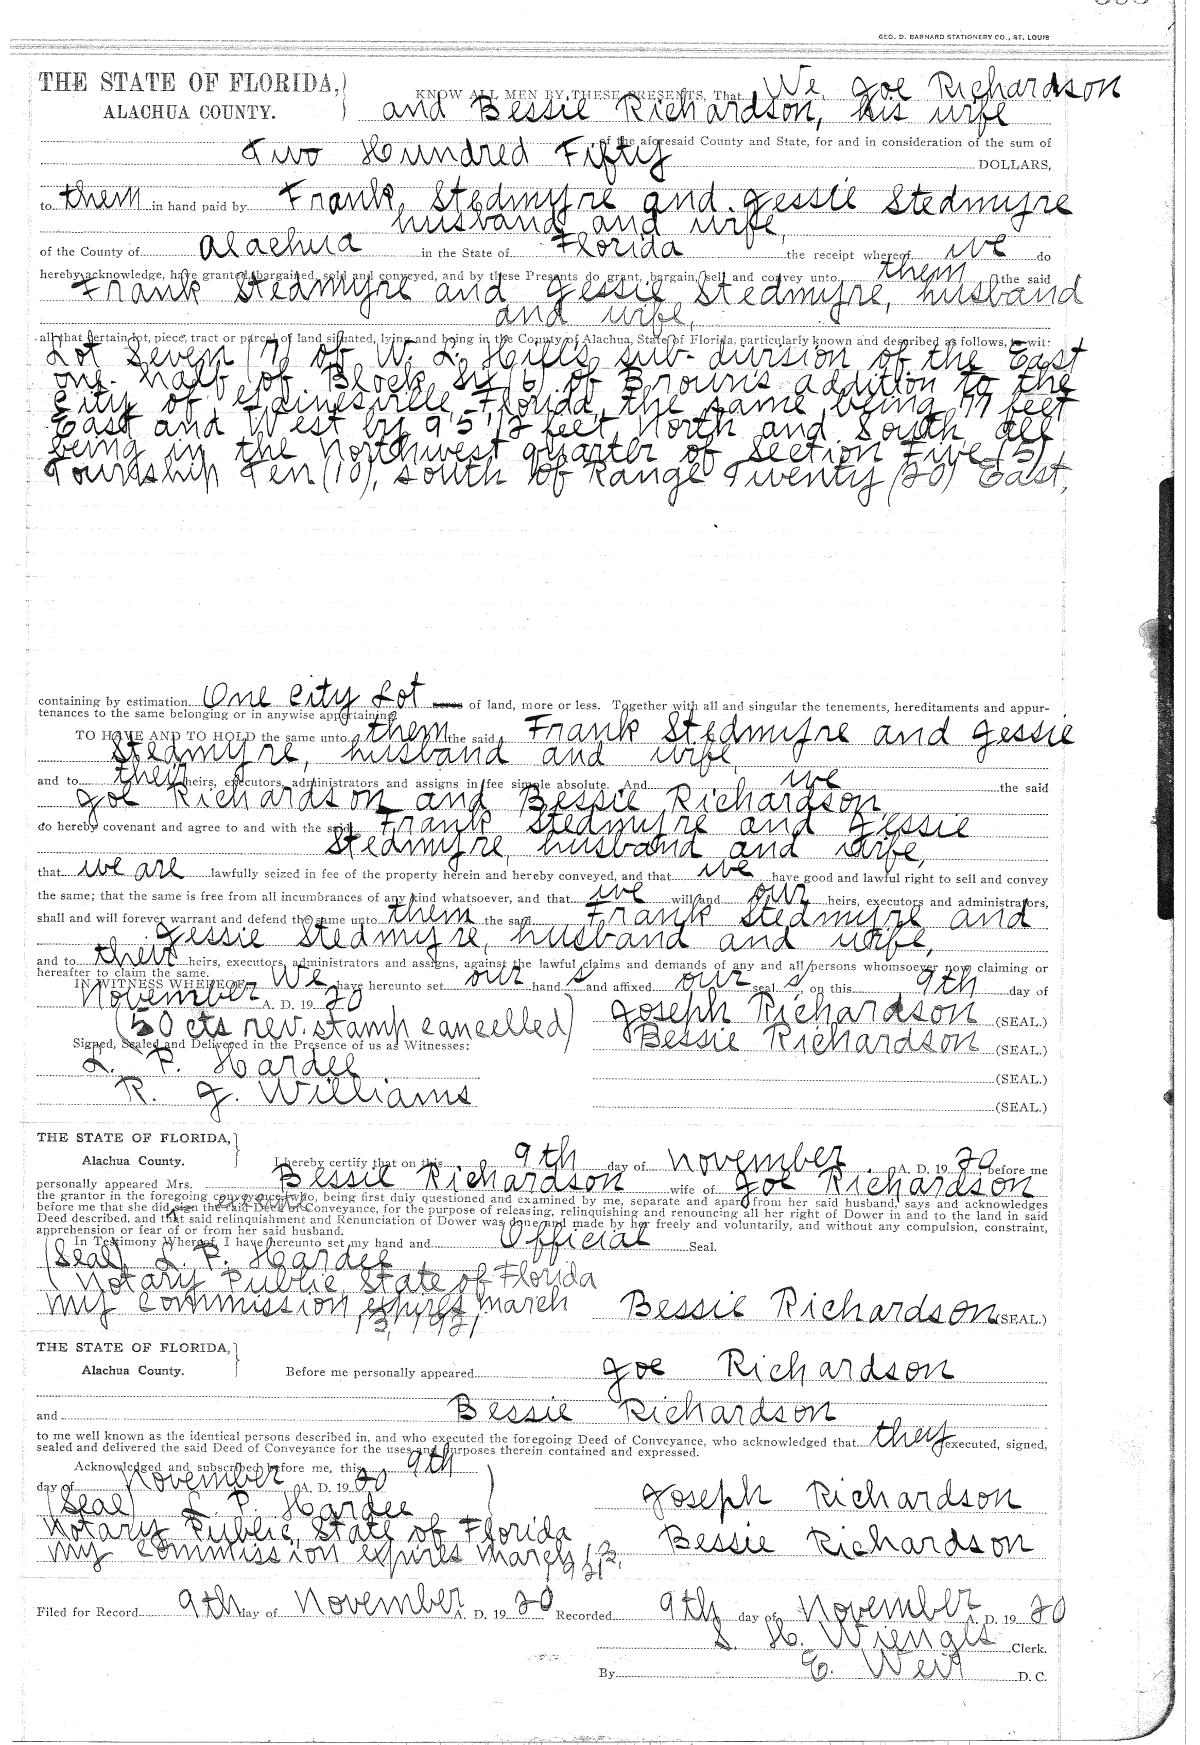 GEO. D. BARNARD STATIONERY CO., ST. LOUIS
THE STATE OF FLORIDA,
ALACHUA COUNTY.
KNOW ALL MEN BY THESE PRESENTS, That We, Joe Richardson
and Bessie Richardson, his wife
of the aforesaid County and State, for and in consideration of the sum of
Two Hundred Fifty DOLLARS,
to them in hand paid by Frank Stedmyre and Jessie Stedmyre
husband and wife,
of the County of Alachua in the State of Florida the receipt whereof we do
hereby acknowledge, have granted, bargained, sold and conveyed, and by these Presents do grant, bargain, sell and convey unto them the said
Frank Stedmyre and Jessie Stedmyre, husband
and wife,
all that certain lot, piece, tract or parcel of land situated, lying and being in the County of Alachua, State of Florida, particularly known and described as follows, to-wit:
Lot Seven (7) of W. L. Hill's sub-division of the East
one-half of Block Six (6) of Brown's addition to the
City of Gainesville, Florida, the same being 77 feet
East and West by 95 1/2 feet North and South all
being in the Northwest quarter of Section Five (5)
Township Ten (10), south of Range Twenty (20) East,
containing by estimation One City Lot acres of land, more or less. Together with all and singular the tenements, hereditaments and appur-
tenances to the same belonging or in anywise appertaining.
TO HAVE AND TO HOLD the same unto them the said Frank Stedmyre and Jessie
Stedmyre, husband and wife,
and to their heirs, executors, administrators and assigns in fee simple absolute. And we the said
Joe Richardson and Bessie Richardson
do hereby covenant and agree to and with the said Frank Stedmyre and Jessie
Stedmyre, husband and wife,
that we are lawfully seized in fee of the property herein and hereby conveyed, and that we have good and lawful right to sell and convey
the same; that the same is free from all incumbrances of any kind whatsoever, and that we will and our heirs, executors and administrators,
shall and will forever warrant and defend the same unto them the said Frank Stedmyre and
Jessie Stedmyre, husband and wife,
and to their heirs, executors, administrators and assigns, against the lawful claims and demands of any and all persons whomsoever now claiming or
hereafter to claim the same.
IN WITNESS WHEREOF, We have hereunto set our hand s and affixed our seal s, on this 9th day of
November A. D. 19 20
(50 cts rev. stamp cancelled) Joseph Richardson (SEAL.)
Signed, Sealed and Delivered in the Presence of us as Witnesses: Bessie Richardson (SEAL.)
L. P. Hardee (SEAL.)
R. J. Williams (SEAL.)
THE STATE OF FLORIDA,
Alachua County.
I hereby certify that on this 9th day of November A. D. 19 20 before me
personally appeared Mrs. Bessie Richardson wife of Joe Richardson
the grantor in the foregoing conveyance, who, being first duly questioned and examined by me, separate and apart from her said husband, says and acknowledges
before me that she did sign the said Deed of Conveyance, for the purpose of releasing, relinquishing and renouncing all her right of Dower in and to the land in said
Deed described, and that said relinquishment and Renunciation of Dower was done and made by her freely and voluntarily, and without any compulsion, constraint,
apprehension or fear of or from her said husband.
In Testimony Whereof, I have hereunto set my hand and Official Seal.
(Seal) L. P. Hardee
Notary Public, State of Florida
My Commission expires March Bessie Richardson (SEAL.)
13, 1921
THE STATE OF FLORIDA,
Alachua County.
Before me personally appeared Joe Richardson
and Bessie Richardson
to me well known as the identical persons described in, and who executed the foregoing Deed of Conveyance, who acknowledged that they executed, signed,
sealed and delivered the said Deed of Conveyance for the uses and purposes therein contained and expressed.
Acknowledged and subscribed before me, this 9th
day of November A. D. 19 20
(Seal) L. P. Hardee Joseph Richardson
Notary Public, State of Florida
My Commission expires March Bessie Richardson
Filed for Record 9th day of November A. D. 19 20 Recorded 9th day of November A. D. 19 20
S. H. Wienges Clerk.
By E. Weir D. C.